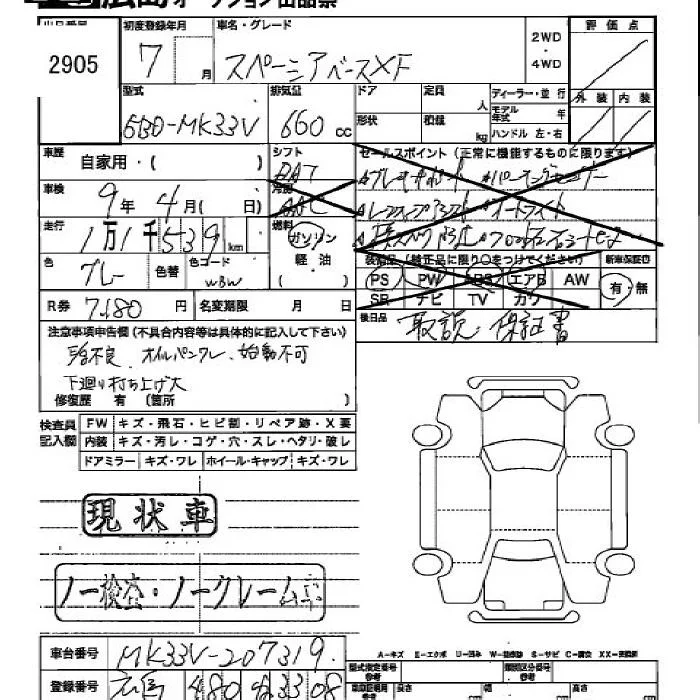 広島 オークション出品票
出品番号 初度登録年月 車名・グレード 評価点
2905 7月 スペーシアベースXF 2WD・4WD
型式 排気量 ドア 定員 人 ディーラー・並行 外装 内装
5BD-MK33V 660cc 形状 積載 kg モデル年式 年
ハンドル 左・右
車歴 自家用・( ) シフト セールスポイント(正常に機能するものに限ります)
車検 9年4月( 日) 冷房
走行 1万1千539km 燃料 ガソリン・軽油( )
装備品(純正品に限り○をつけてください) 新車保証書
色 グレー 色替 色コード PS PW エアB AW 有・無
SR ナビ TV カワ
R券 7,180円 名変期限 月 日 後日品 取説 保証書
注意事項申告欄(不具合内容等は具体的に記入して下さい)
オイルパンワレ、始動不可
下廻り打ち上げ大
修復歴 有(箇所 )
検査員記入欄 FW キズ・飛石・ヒビ割・リペア跡・X要
内装 キズ・汚レ・コゲ・穴・スレ・ヘタリ・破レ
ドアミラー キズ・ワレ ホイール・キャップ キズ・ワレ
現状車
ノー検査・ノークレーム車
車台番号 MK33V-207319
A-キズ E-エクボ U-凹み W-補修跡 S-サビ C-腐食 XX-交換済
登録番号 広島 480 3308
型式指定番号 参考 類別区分番号 参考
長さ cm 幅 cm 高さ cm